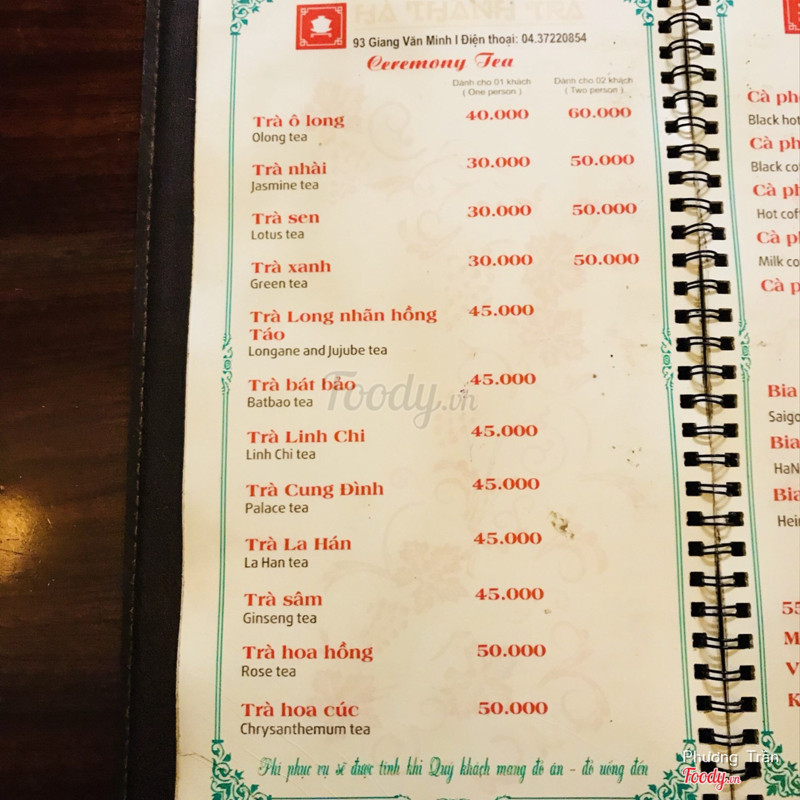 HÀ THÀNH TRÀ
93 Giang Văn Minh I Điện thoại: 04.37220854
Ceremony Tea
Dành cho 01 khách Dành cho 02 khách
( One person ) ( Two person )
Trà ô long 40.000 60.000
Olong tea
Trà nhài 30.000 50.000
Jasmine tea
Trà sen 30.000 50.000
Lotus tea
Trà xanh 30.000 50.000
Green tea
Trà Long nhãn hồng 45.000
Táo
Longane and Jujube tea
Trà bát bảo 45.000
Batbao tea
Trà Linh Chi 45.000
Linh Chi tea
Trà Cung Đình 45.000
Palace tea
Trà La Hán 45.000
La Han tea
Trà sâm 45.000
Ginseng tea
Trà hoa hồng 50.000
Rose tea
Trà hoa cúc 50.000
Chrysanthemum tea
Phí phục vụ sẽ được tính khi Quý khách mang đồ ăn - đồ uống đến
Cà ph
Black hot
Cà ph
Black co
Cà ph
Hot coff
Cà p
Milk co
Cà p
Bia
Saigo
Bia
HaN
Bia
Hein
55
M
V
K
Foody.vn
Phương Trần
Foody.vn